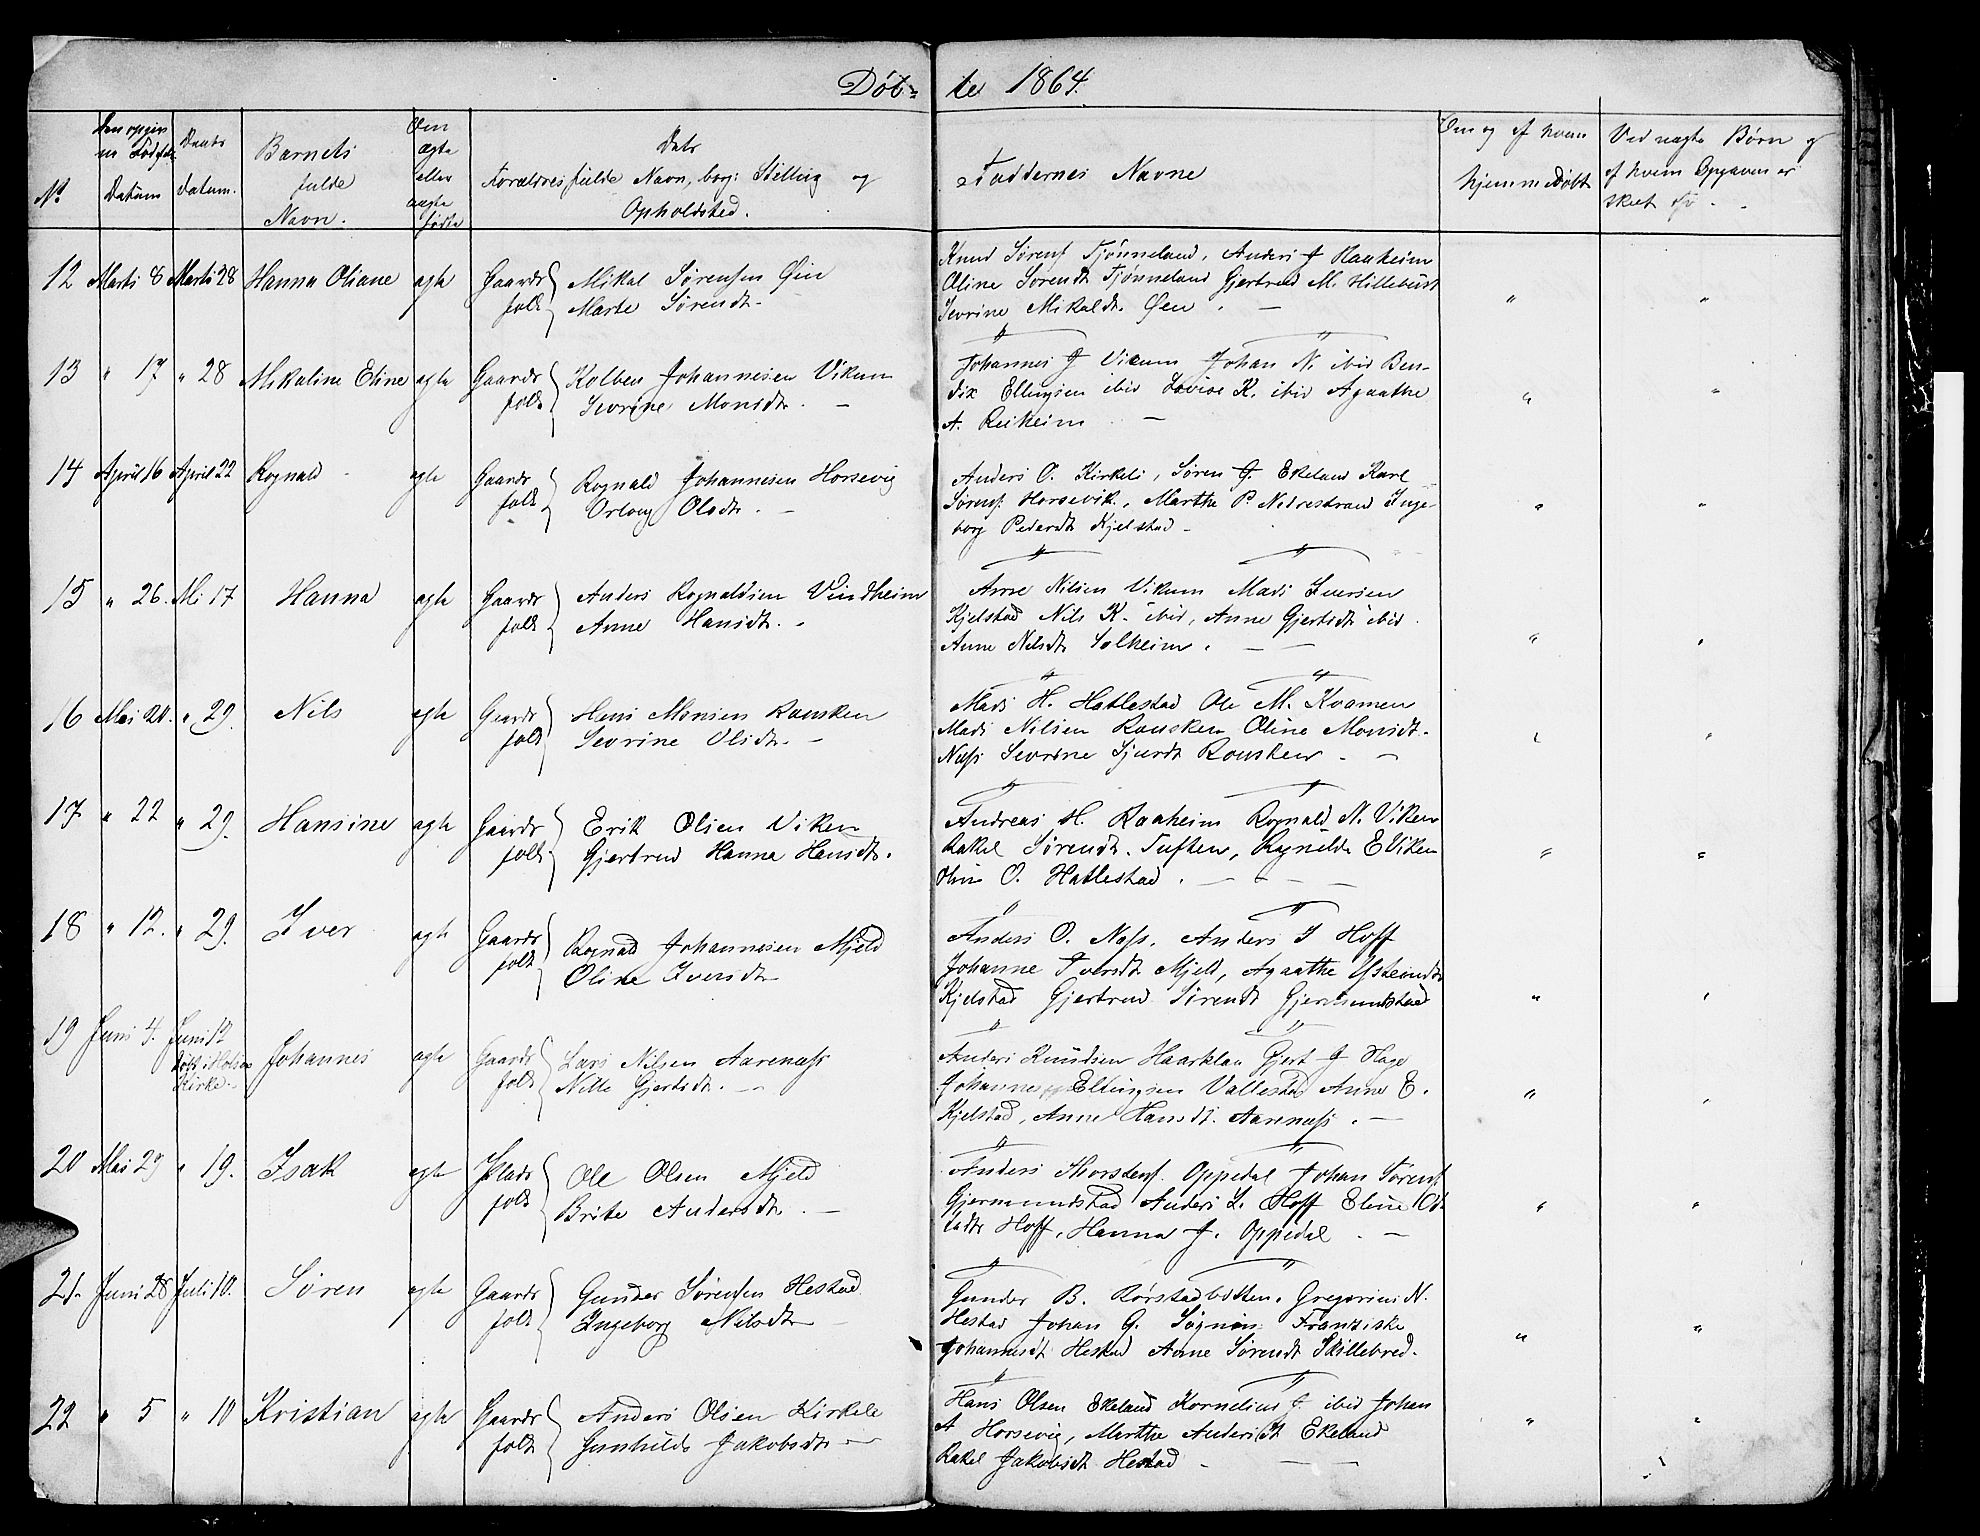 Døb- te 1864.
No
Den opgivne Føds: Datum
Daabs Datum.
Barnets fulde Navn.
Om ægte eller uægte fødte
Dets Forældres fulde Navn, borg: Stilling og Opholdsted.
Faddernes Navne
Om og af hvem hjemmedøbt
Ved uægte Børn og af hvem Opgaven er skeet
12 Marts 8 Marts 28 Hanna Oliane ægte Gaards folk Mikal Sørensen Øen
Marte Sørendt.
Knud Sørens Tjønneland, Anders J Raaheim
Oline Sørendt Tjønneland Gjertrud M. Hillebust
Sevrine Mikaldt. Øen . —
13 " 17 " 28 Mikaline Eline ægte Gaards folk Kolben Johannesen Vikum
Sevrine Monsdt. —
Johannes J Vikum Johan N. ibid Ben-
dix Ellingsen ibid Lovise K. ibid Agaathe
A. Reiheim —
14 April 16 April 22 Rognald ægte Gaards folk Rognald Johannesen Horsevig
Orloug Olsdt. —
Anders O. Kirkeli, Søren J. Ekeland Karl
Sørens. Horsevik, Marthe P. Nedrestrand Inge-
borg Pedersdt Kjelstad —
15 " 26. Mi 17 Hanna ægte Gaards folk Anders Rognaldsen Vindheim
Anne Hansdt. -
Arne Nilsen Vikum Mads Iversen
Kjelstad Nils K. ibid, Anne Gjertsdt ibid.
Anne Nilsdt Solheim. — —
16 Mai 20. " 29. Nils ægte Gaards folk Hans Monsen Rausken
Sevrine Olsdt. —
Mads H. Hatlestad Ole M. Kvamen
Mads Nilsen Rausken Oline Monsdt.
Næss Sevrine Sjurdt Rousken — —
17 " 22 " 29. Hansine ægte Gaards folk Erik Olsen Viken
Gjertrud Hanna Hansdt.
Andreas H. Raaheim Rognald N. Viken
Rakel Sørendt. Tuften, Ragnilde E Viken
Oline O. Hatlestad . — — —
18 " 12. " 29. Iver ægte Gaards folk Rognald Johannesen Mjeld
Oline Iversdt
Anders O. Næss, Anders I Hoff
Johanne Iversdt Mjeld, Agaathe Ysteindt
Kjelstad Gjertrud Sørendt Gjermundstad
19 Juni 4. Juni 12 Døbt i Holsen Kirke. Johannes ægte Gaards folk Lars Nilsen Aarenæss
Nille Gjertsdt. —
Anders Knudsen Haarklau Gjert J Hage
Johannes Ellingsen Vallestad Anne E.
Kjelstad, Anne Hansdt. Aarenæss . —
20 Mai 29 " 19. Isak ægte Plads folk Ole Olsen Mjeld
Brite Andersdt. —
Anders Thorstens. Oppedal Johan Sørens.
Gjermundstad Anders L. Hoff Eline
Hoff, Hanna J. Oppedal . —
21. Juni 28 Juli 10. Søren ægte Gaards folk Gunder Sørensen Hestad
Ingeborg Nilsdt —
Gunder B. Rørstadbotten. Gregorius N.
Hestad Johan G. Søgnin Franziske
Johannesdt Hestad Anne Sørendt Skillebred.
22 " 5 " 10 Kristian ægte Gaards folk Anders Olsen Kirkele
Gunhilde Jakobsdt. —
Hans Olsen Ekeland Kornelius J. ibid Johan
A Horsevig, Marthe Andersdt Ekeland
Rakel Jakobsdt Hestad - — —